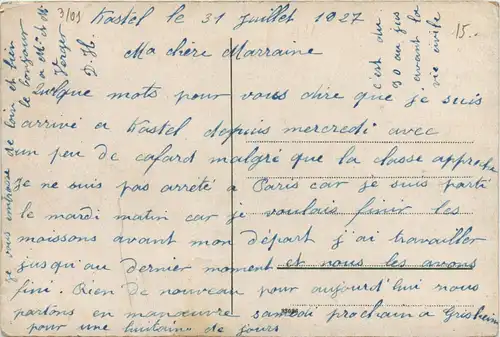 3/09
Kastel le 31 juillet 1927
15.-
Ma chère Marraine
Quelque mots pour vous dire que je suis
arrivé a Kastel depuis mercredi avec
un peu de cafard malgré que la classe approche
Je ne suis pas arrété a Paris car je suis parti
le mardi matin car je voulais finir les
moissons avant mon départ j'ai travailler
jusqu'au dernier moment et nous les avons
fini. Rien de nouveau pour aujourd'hui nous
partons en manœuvre samedi prochain a Griesheim
pour une huitaine de jours
je vous embrasse de loin et bien
le bonjour
a Mr et Me
D. H.
c'est du
90 au jus
avant la
vie civile